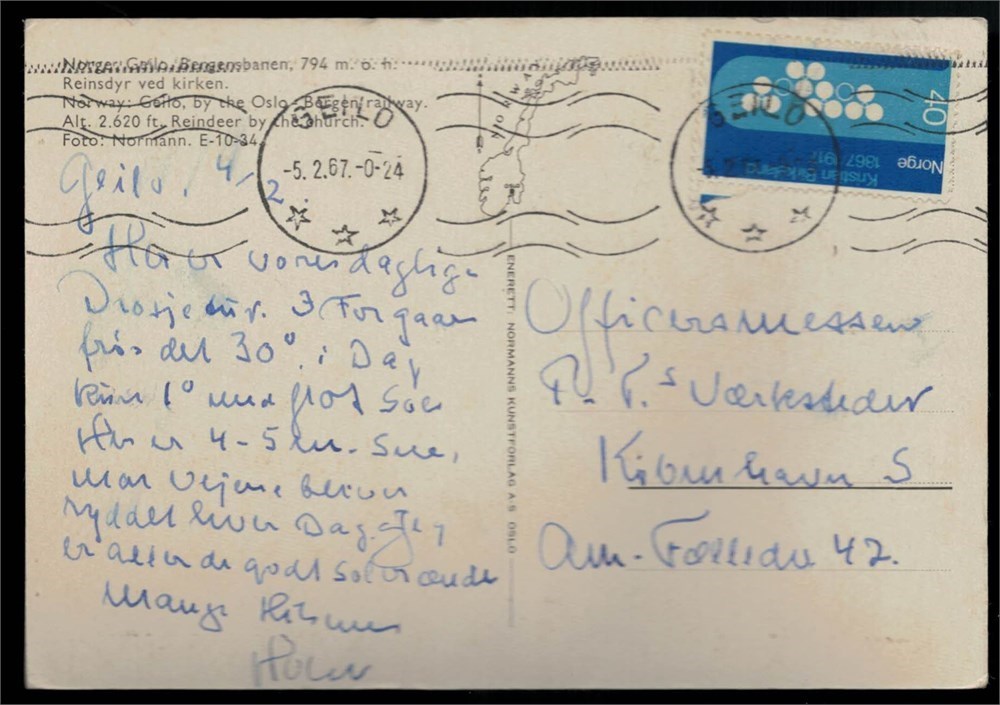 Norge: Geilo, Bergensbanen, 794 m. o. h.
Reinsdyr ved kirken.
Norway: Geilo, by the Oslo - Bergen railway.
Alt. 2.620 ft. Reindeer by the church.
Foto: Normann. E-10-34
NORWAY
GEILO
-5.2.67.-0-24
GEILO
40
Norge
Kristian Birkeland
1867-1917
Geilo, 4/2.
Her er vores daglige
Drosje tur. 3 Forgaar
frøs det 30°. i Dag
kun 1° med flot Sol
Her er 4-5 m. Sne,
man Vejene bliver
ryddet hver Dag. Jeg
er allerede godt solbrændt
Mange Hilsner
ENERETT: NORMANNS KUNSTFORLAG A.S OSLO
Officersmessen
P. T.s Værksteder
København S
Am. Fælledv 42.